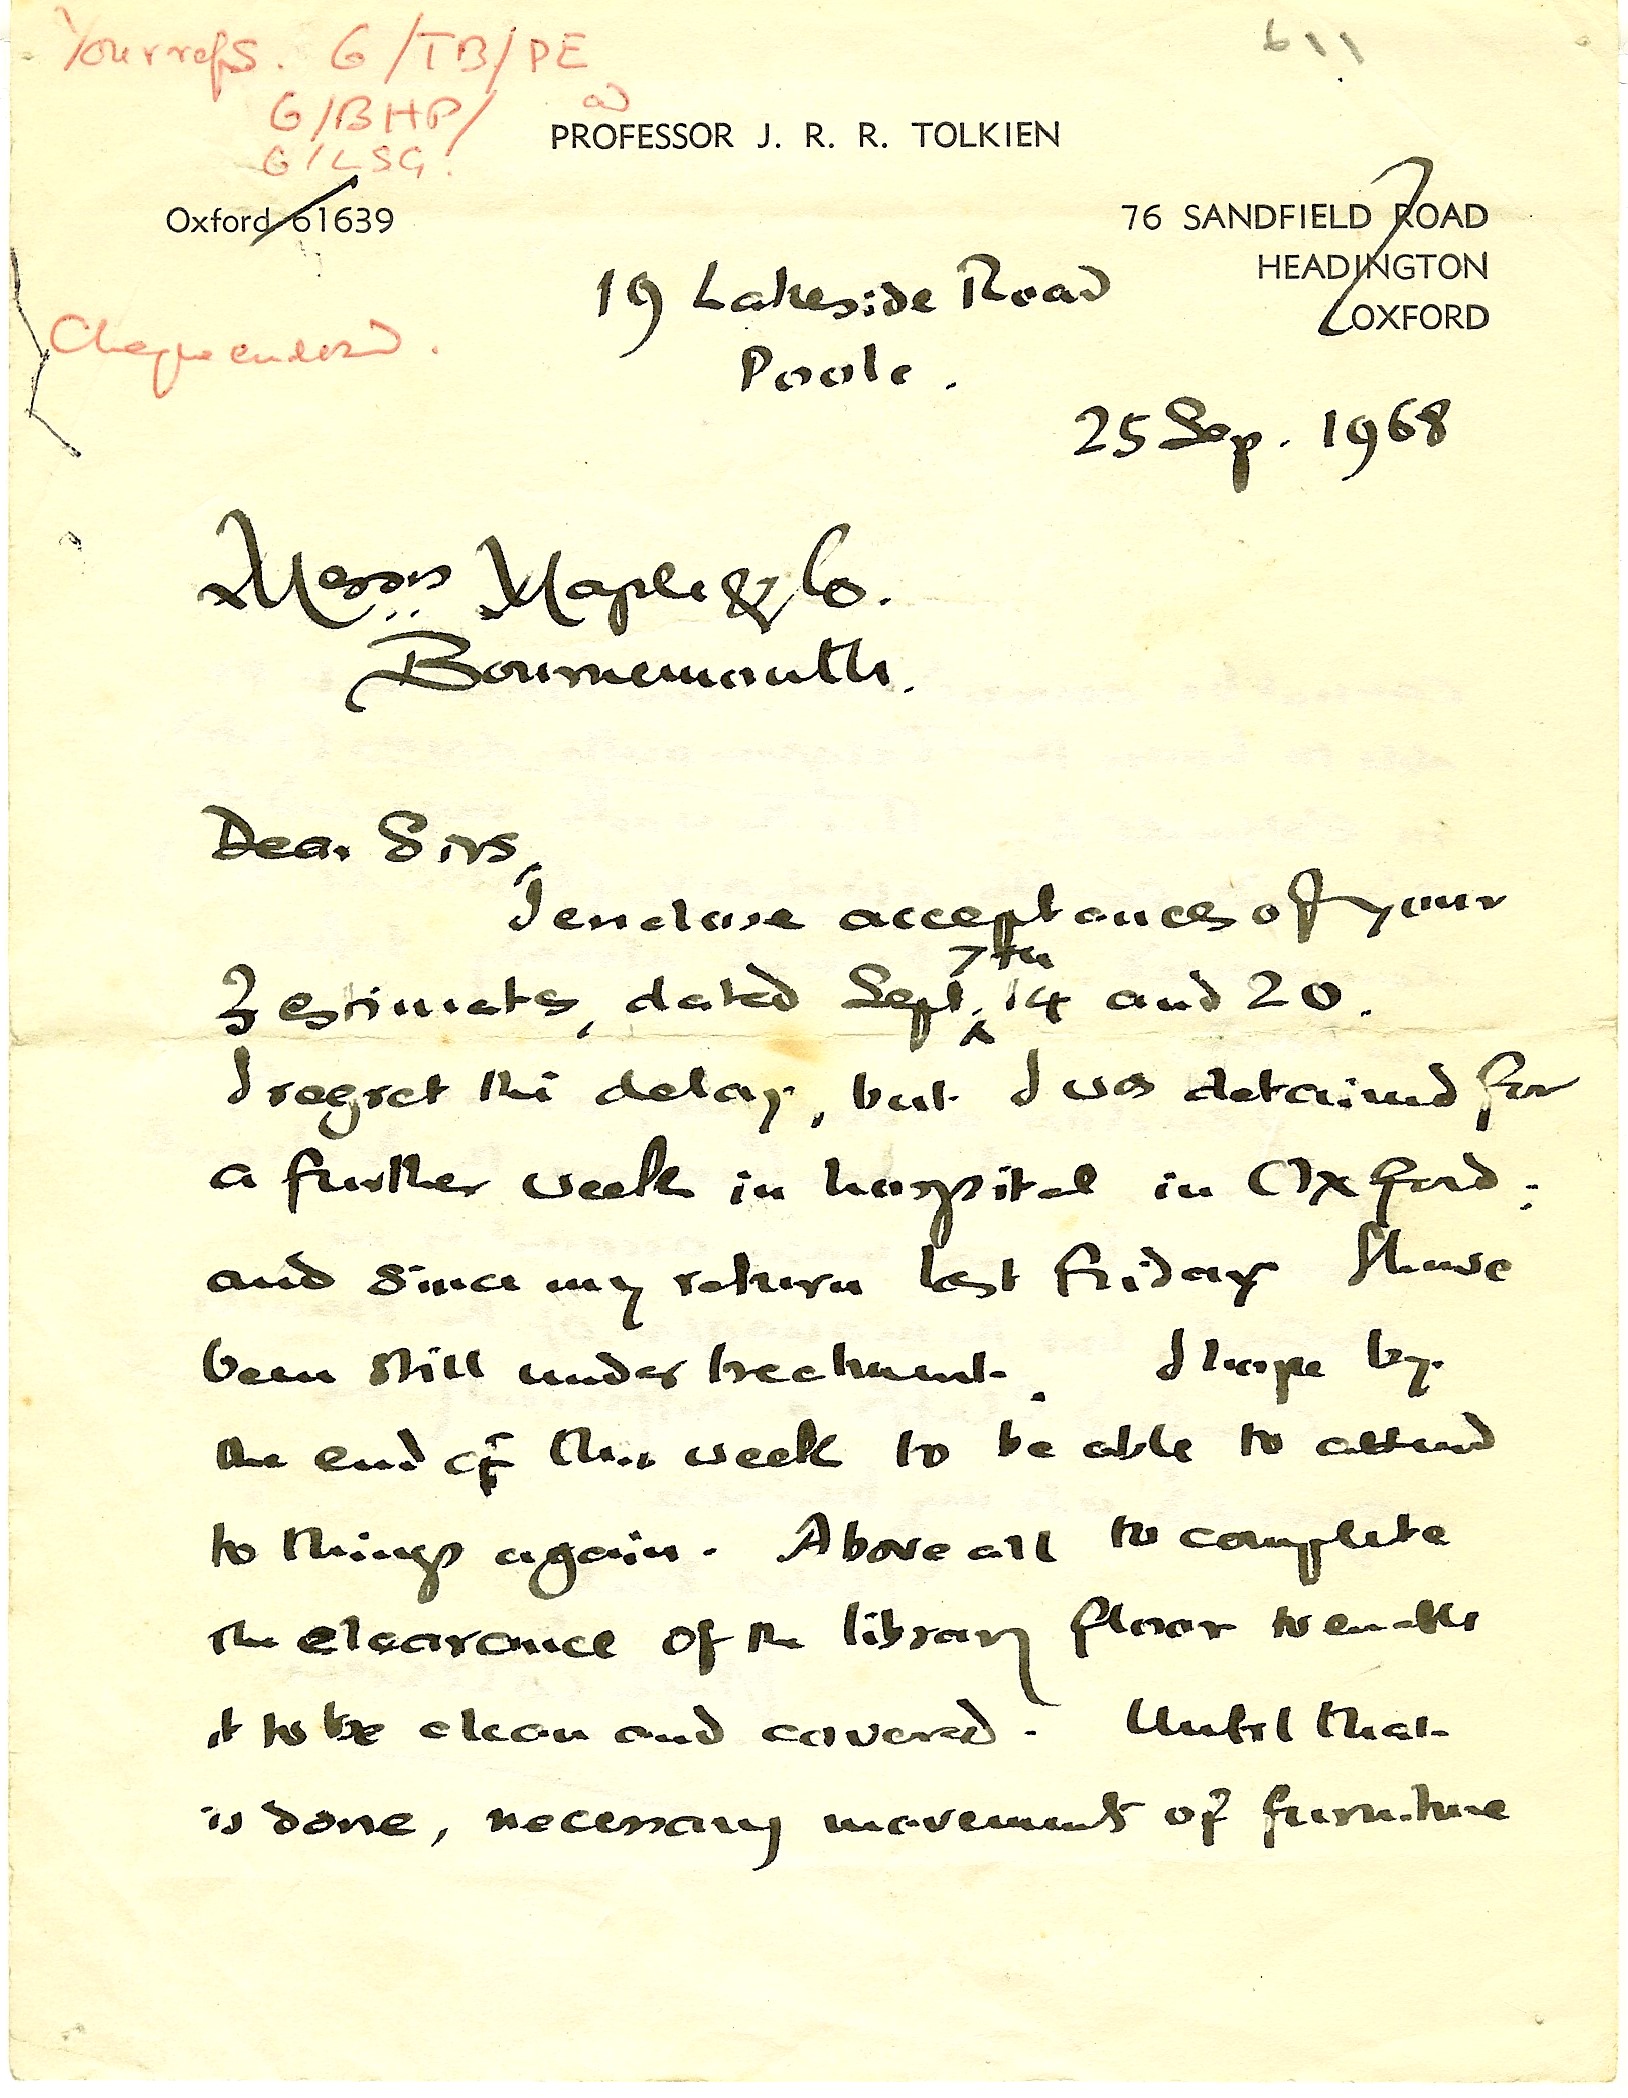 Your refs. G/TB/PE
G/BHP/
G/LSG.
611
PROFESSOR J. R. R. TOLKIEN
Oxford 61639
76 SANDFIELD ROAD
HEADINGTON
OXFORD
19 Lakeside Road
Poole.
Cheque enclosed.
25 Sep. 1968
Messrs Maple & Co.
Bournemouth.
Dear Sirs,
I enclose acceptances of your
3 estimates, dated Sept. 7th 14 and 20.
I regret the delay, but I was detained for
a further week in hospital in Oxford;
and since my return last Friday I have
been still under treatment. I hope by
the end of this week to be able to attend
to things again. Above all to complete
the clearance of the library floor to enable
it to be clean and covered. Until that
is done, necessary movements of furniture